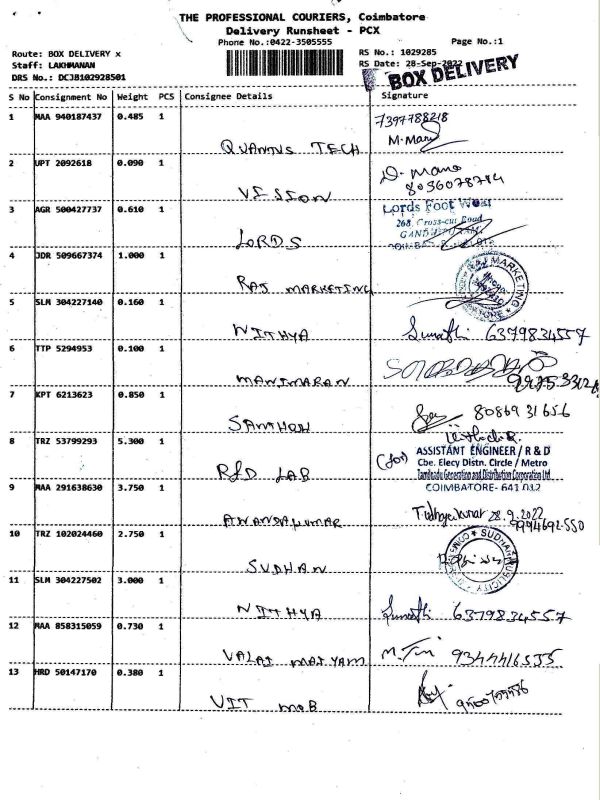 THE PROFESSIONAL COURIERS, Coimbatore
Delivery Runsheet - PCX
Phone No.:0422-3505555
Page No.:1
Route: BOX DELIVERY x
RS No.: 1029285
Staff: LAKHMANAN
RS Date: 28-Sep-2022
DRS No.: DCJB102928501
BOX DELIVERY
S No Consignment No Weight PCS Consignee Details Signature
1 MAA 940187437 0.485 1
7397788218
M. Mani
QUANTUS TECH
2 UPT 2092618 0.090 1
D. Mano
8056078784
VISSION
3 AGR 500427737 0.610 1
Lords Foot West
268, Cross-cut Road
LORDS
4 JDR 509667374 1.000 1
RAJ MARKETING
5 SLM 304227140 0.160 1
NITHYA
Sumathi 6379834557
6 TTP 5294953 0.100 1
MANIMARAN
7 KPT 6213623 0.850 1
SANTHOH
8086931656
8 TRZ 53799293 5.300 1
(for) ASSISTANT ENGINEER / R & D
Cbe. Elecy Distn. Circle / Metro
Tamilnadu Generation and Distribution Corporation Ltd
COIMBATORE- 641 012
R&D LAB
9 MAA 291638630 3.750 1
28.9.2022
9994692550
ANANDAKUMAR
10 TRZ 102024460 2.750 1
SUDHAN
11 SLM 304227502 3.000 1
NITHYA
Sumathi 6379834557
12 MAA 858315059 0.730 1
VALAI MAIYAM
9344416555
13 HRD 50147170 0.380 1
VIT MOB